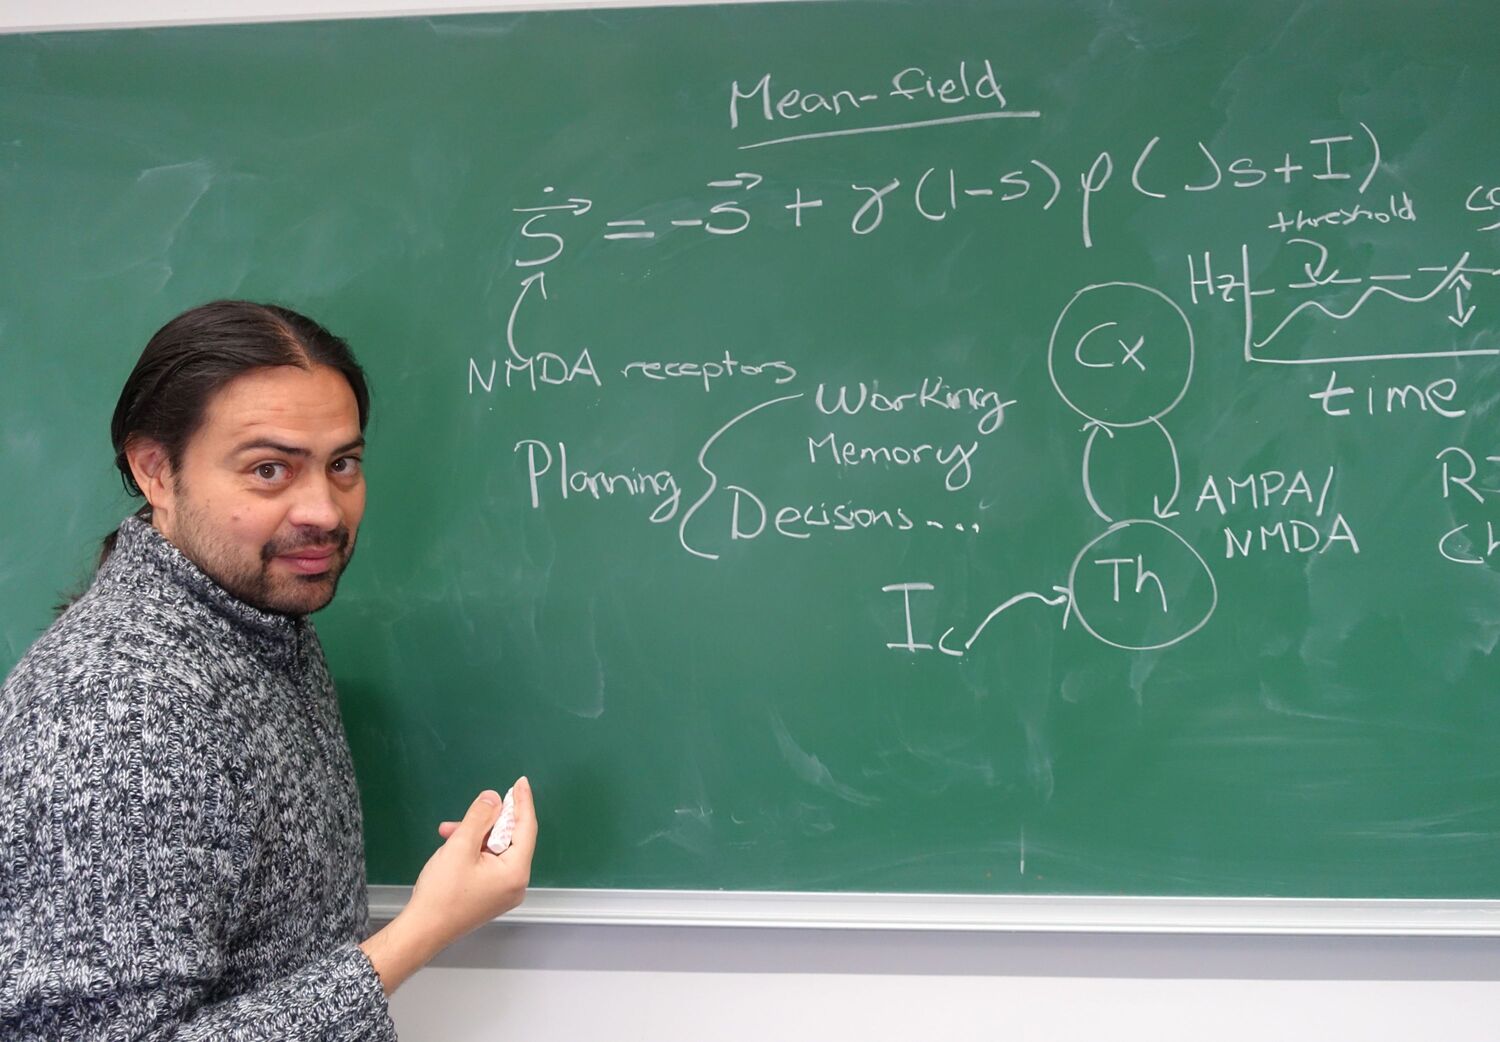 Mean-field
Ṡ⃗ = -S⃗ + γ(1-S) ρ(JS+I)
threshold
Hz
time
NMDA receptors
Planning
Working
Memory
Decisions....
Cx
AMPA/
NMDA
Th
Ic